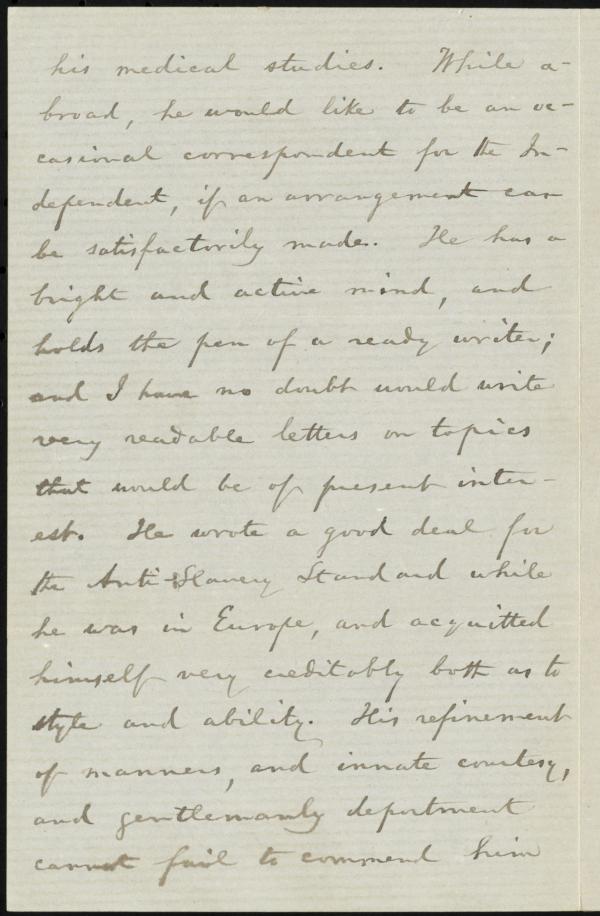 his medical studies. While a-
broad, he would like to be an oc-
casional correspondent for the In-
dependent, if an arrangement can
be satisfactorily made. He has a
bright and active mind, and
holds the pen of a ready writer;
and I have no doubt would write
very readable letters on topics
that would be of present inter-
est. He wrote a good deal for
the Anti-Slavery Standard while
he was in Europe, and acquitted
himself very creditably both as to
style and ability. His refinement
of manners, and innate courtesy,
and gentlemanly deportment
cannot fail to commend him